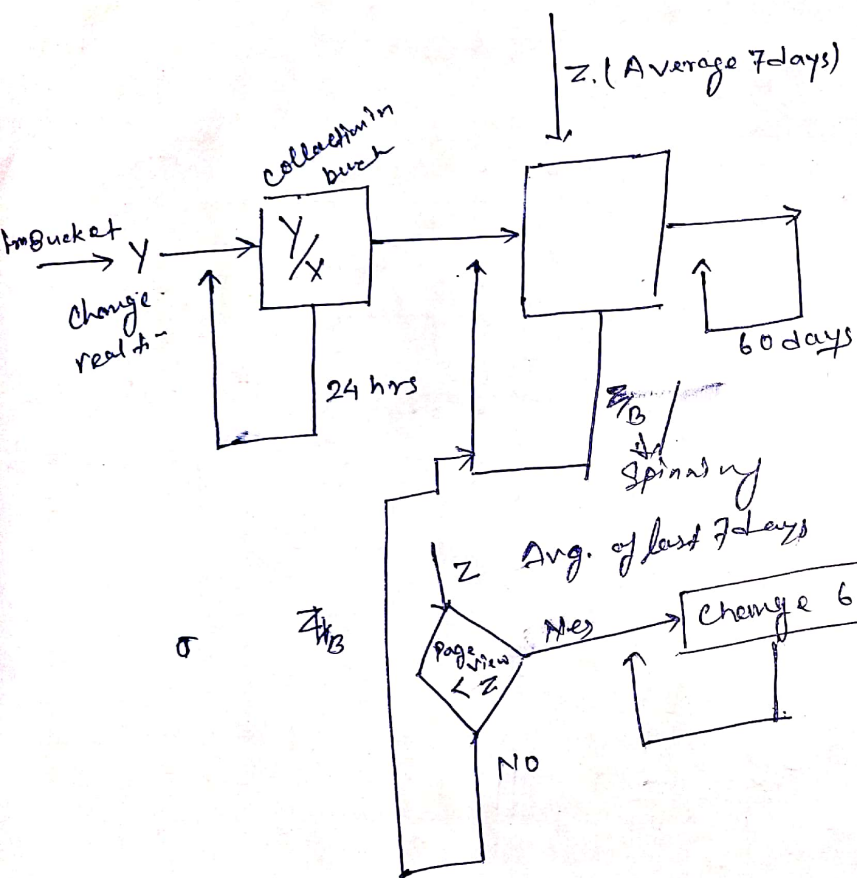 Z. (Average 7days)
collection in
Bucket
Y
Y/X
Change
real
24 hrs
60 days
Z/B
Spinning
Avg. of last 7days
Z
Z/B
Page
view
< Z
Yes
Change 6
NO